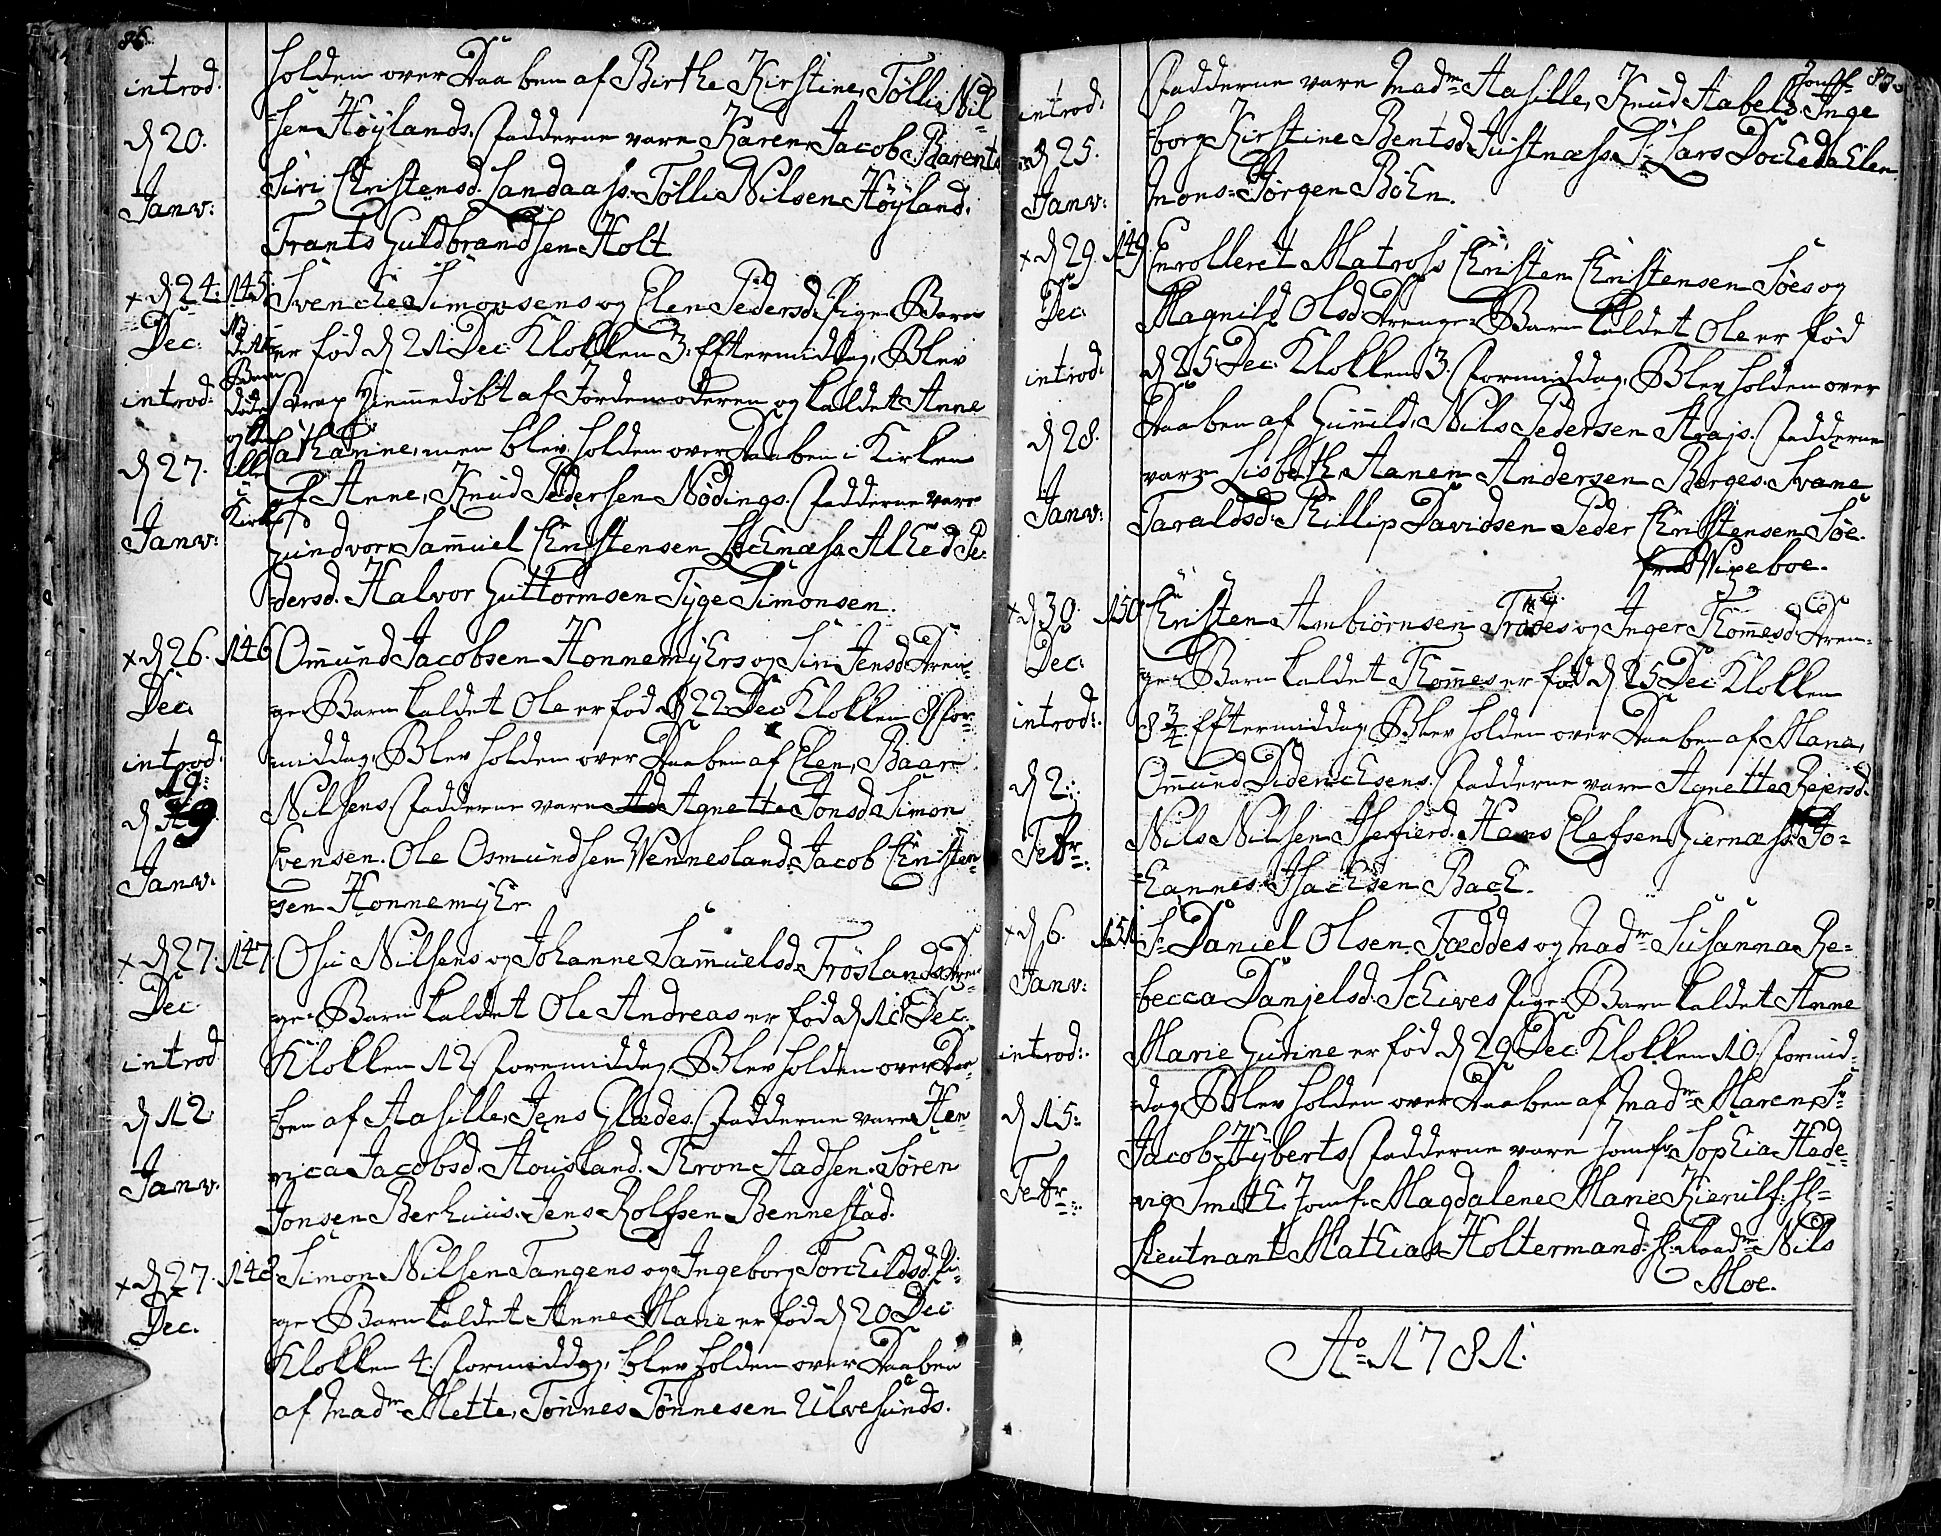 86.
introd.
d 20.
Janv:
holden over Daaben af Birthe Kirstine, Tølli Nil-
-sen Høylands. Fadderne vare Karen Jacob Barents
Siri Christensd. Landaas. Tølli Nilsen Høyland.
Frants Guldbrandsen Holt
+ d 24. 145.
Dec.
introd.
d 27.
Janv:
NB
dette
Barn
døde
Kirke
Svenche Simonsens og Elen Pedersd. Pige-Barn
er fød d 21 Dec. Klokken 3. Eftermiddag, Blev
strax Hiemmedøbt af Jordemoderen og kaldet Anne
Cathanine, men blev holden over Daaben i Kirken
af Anne, Knud Pedersen Nødings. Fadderne vare
Gundvor Samuel Christensen Alhed Pe-
-dersd. Halvor Guttormsen Tyge Simonsen.
+ d 26. 146
Dec.
introd.
19.
d 19
Janv.
Omund Jacobsen Honnemyhrs og Siri Jensd. Dren-
ge-Barn kaldet Ole er fød d 22 Dec. Klokken 8 For-
middag, Blev holden over Daaben af Elen, Baar
Nilsens. Fadderne vare Agnette Jonsd. Simon
Evensen. Ole Osmundsen Vennesland. Jacob Christen-
sen Honnemyhr
+ d 27. 147.
Dec.
introd
d 12
Janv.
Osu Nilsens og Johanne Samuelsd. Trøslands Dren-
ge-Barn kaldet Ole Andreas er fød d 18 Dec.
Klokken 12 Foremiddag, Blev holden over Daa-
-ben af Aasille, Jens Glades. Fadderne vare Hen-
rica Jacobsd. Housland. Thron Aadsen. Søren
Jonsen Berhuus. Jens Rolfsen Bennestad.
+ d 27. 148
Dec.
Simon Nilsen Tangens og Ingeborg Torchildsd. Pi-
ge Barn kaldet Anne Marie er fød d 20 Dec.
Klokken 4. Formiddag, blev holden over Daaben
af Madm Mette, Tønnes Tønnesen Ulvesunds.
87.
introd:
d 25.
Janv:
Fadderne vare Madm Aasille, Knud Aabels Jomfr Inge
-borg Kirstine Bentsd. Justnæss. Sr Lars Dochedalen
Mons: Jørgen Bøhn.
+ d 29. 149.
Dec.
introd:
d 28.
Janv:
Enrolleret Matross Christen Christensen Søes og
Magnild Olsd. Drenge-Barn kaldet Ole er fød
d 25 Dec. Klokken 3. Formiddag, Blev holden over
Daaben af Gunild, Nils Pedersen Aaas. Fadderne
vare Lisbeth Aanen Andersen Berges. Svane
Taraldsd. Phillip Davidsen Peder Christensen Søe.
Wigeboe.
+ d 30. 150
Dec.
introd:
d 2.
Febr:
Christen Ambiørnsen Træes og Inger Thomesd. Dren-
ge-Barn kaldet Thomes er fød d 25 Dec. Klokken
8 3/4 Eftermiddag, Blev holden over Daaben af Maria,
Omund Diderichsens. Fadderne vare Agnette Reiersd.
Nils Nilsen Hans Elefsen Giernæss. Jo-
-hannes Isachsen Bach.
+ d 6. 151
Janv:
introd:
d 15.
Febr:
Sr Daniel Olsen Fæddes og Madm Susanna Re-
-becca Danjelsd. Schives Pige-Barn kaldet Anne
Marie Gurine er fød d 29 Dec. Klokken 10 Formid-
-dag, Blev holden over Daaben af Madm Maren, Sr
Jacob Hyberts. Fadderne vare Jomfr. Sophia Hede-
-vig Smith. Jomfr. Magdalene Marie Kierulf. Hr
Lieutnant Mathias Holtermand. Nils
Moe.
Ao 1781.